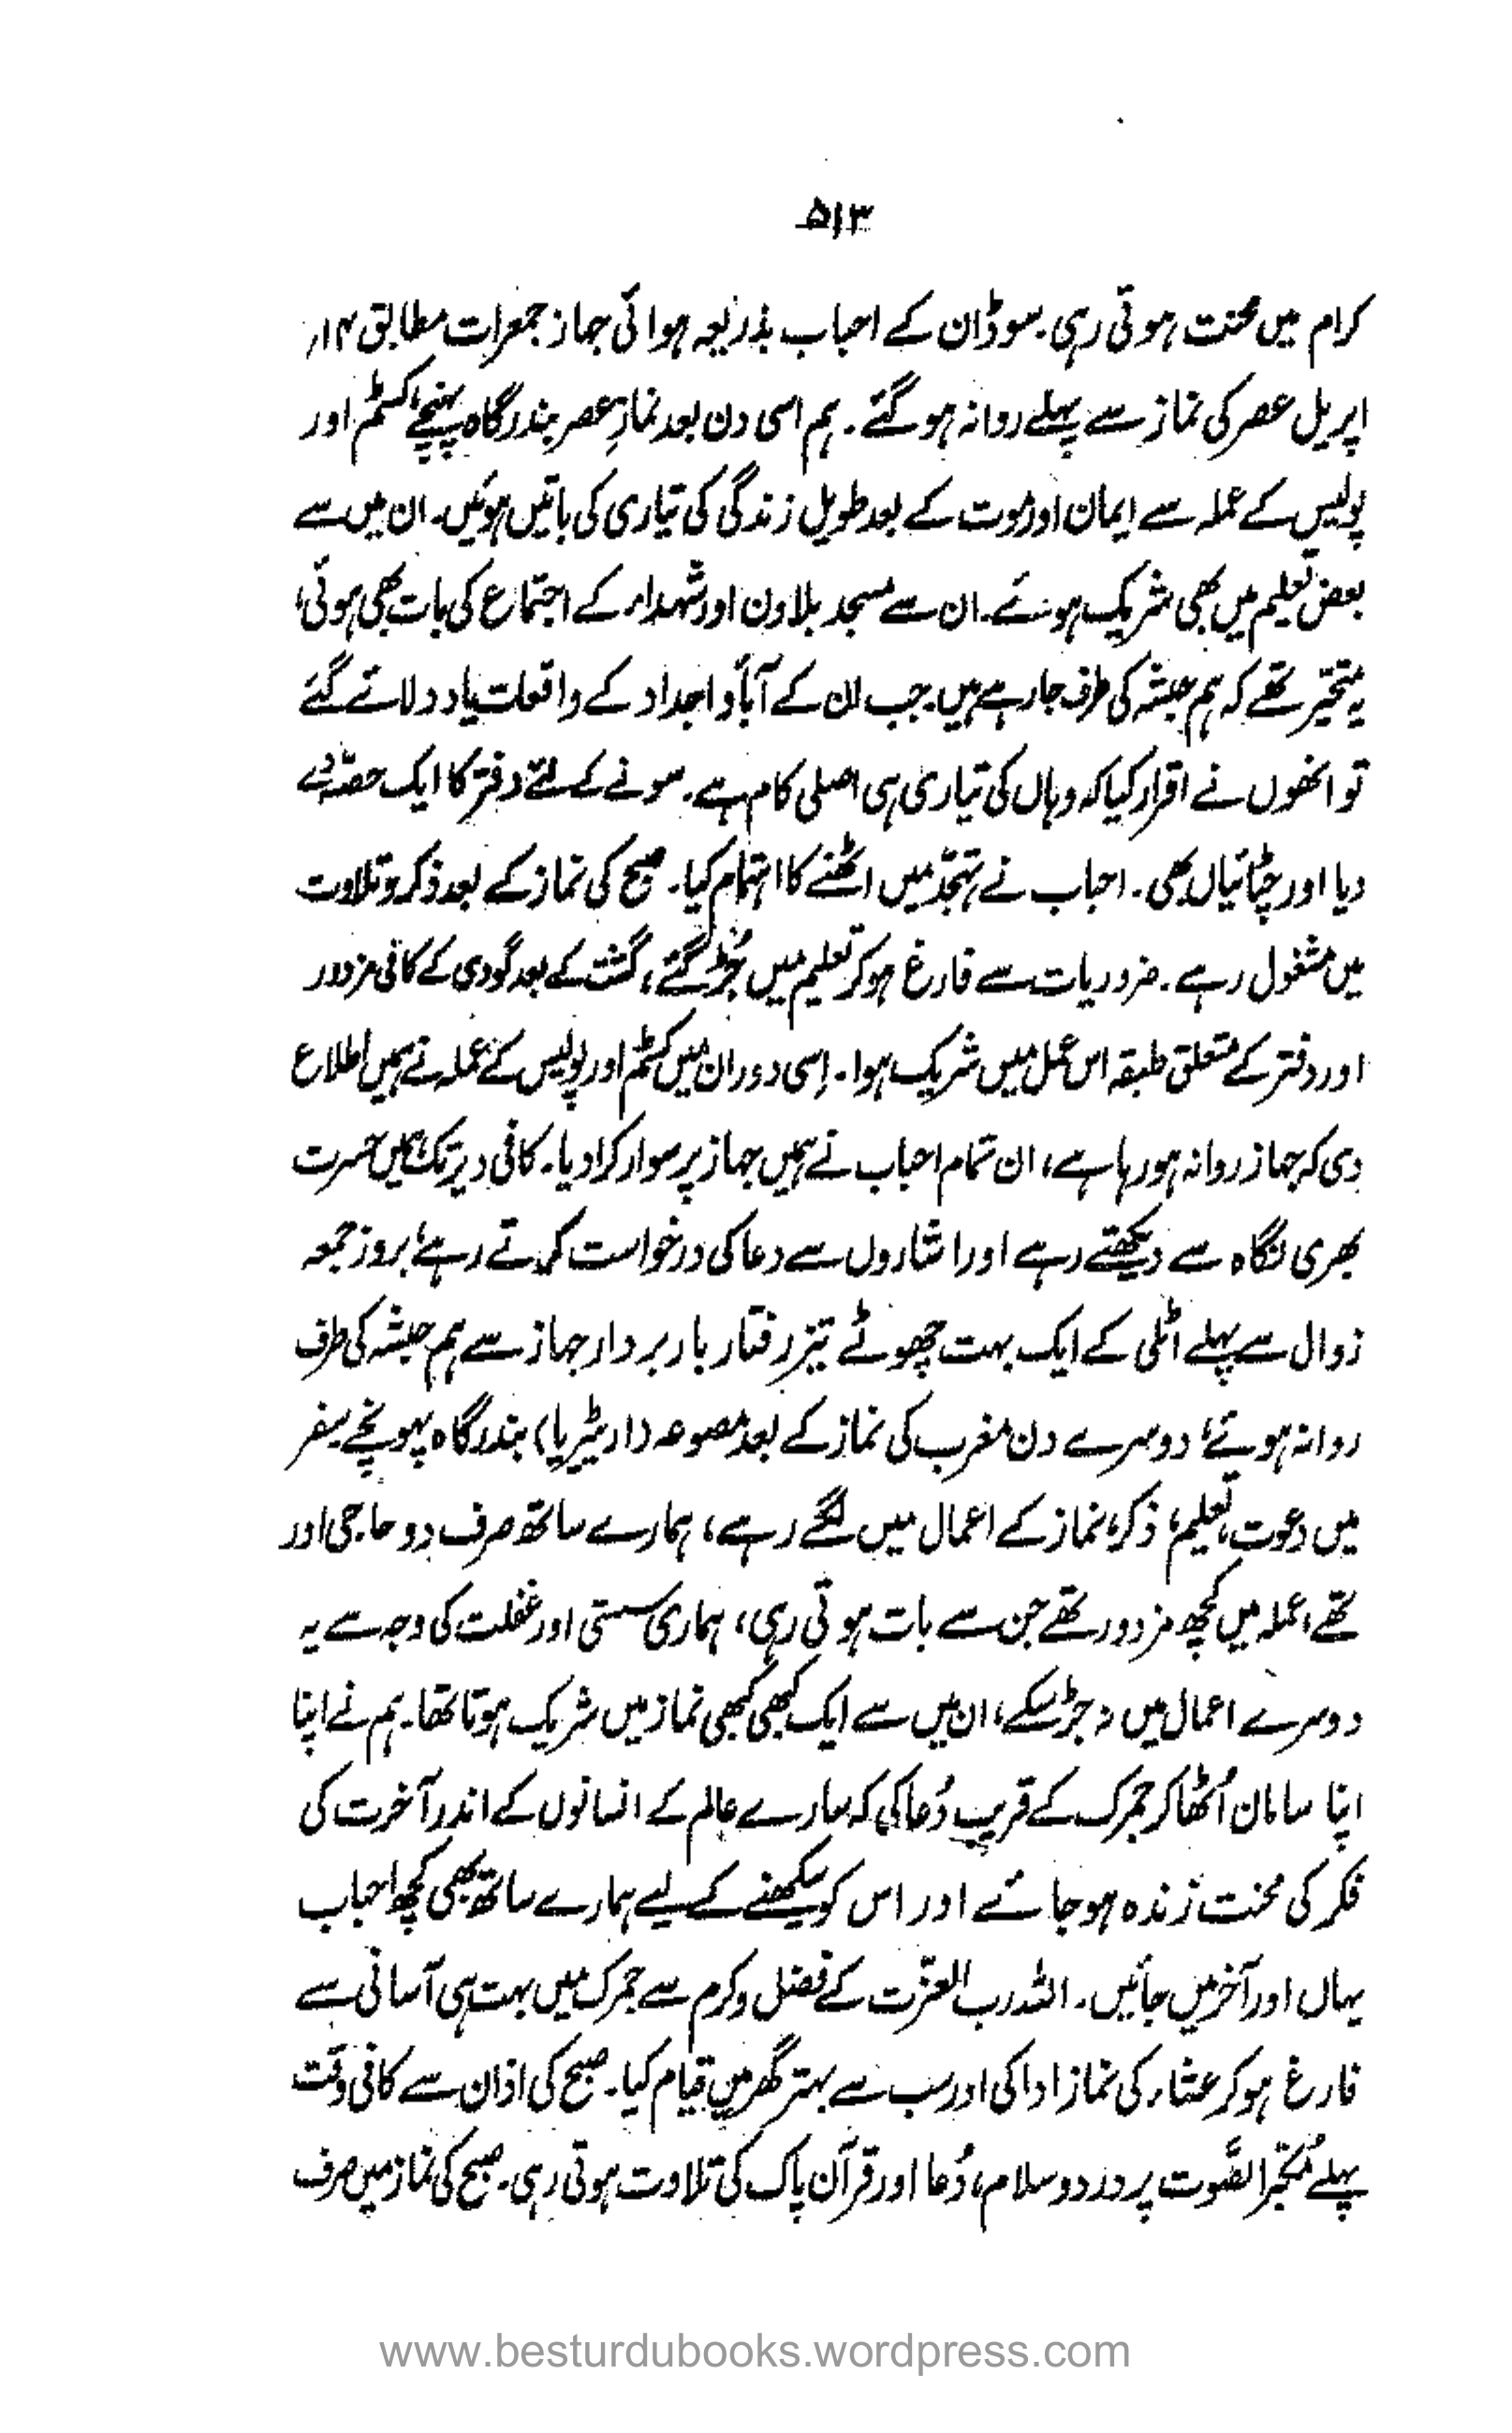 ۵۱۳
کرام میں محنت ہوتی رہی۔ سوڈان کے احباب بذریعہ ہوائی جہاز جمعرات مطابق ۱۴ر
اپریل عصر کی نماز سے پہلے روانہ ہو گئے۔ ہم اسی دن بعد نمازِ عصر بندرگاہ پہنچے، کسٹم اور
پولیس کے عملہ سے ایمان اور موت کے بعد طویل زندگی کی تیاری کی باتیں ہوئیں۔ ان میں سے
بعض تعلیم میں بھی شریک ہوئے۔ ان سے مسجد بلاون اور شہداء کے اجتماع کی بات بھی ہوئی،
یہ متحیّر تھے کہ ہم حبشہ کی طرف جا رہے ہیں۔ جب ان کے آبأو اجداد کے واقعات یاد دلائے گئے
تو انھوں نے اقرار کیا کہ وہاں کی تیاری ہی اصلی کام ہے۔ سونے کے لئے دفتر کا ایک حصّہ دے
دیا اور چٹائیاں بھی۔ احباب نے تہجّد میں اٹھنے کا اہتمام کیا۔ صبح کی نماز کے بعد ذکر و تلاوت
میں مشغول رہے۔ ضروریات سے فارغ ہو کر تعلیم میں جُڑ گئے، گشت کے بعد گودی کے کافی مزدور
اور دفتر کے متعلق طبقہ اس عمل میں شریک ہوا۔ اِسی دوران میں کسٹم اور پولیس کے عملہ نے ہمیں اطلاع
دی کہ جہاز روانہ ہو رہا ہے، ان تمام احباب نے ہمیں جہاز پر سوار کرا دیا۔ کافی دیر تک ہمیں حسرت
بھری نگاہ سے دیکھتے رہے اور اشاروں سے دعا کی درخواست کرتے رہے، بروز جمعہ
زوال سے پہلے اٹلی کے ایک بہت چھوٹے تیز رفتار بار بردار جہاز سے ہم حبشہ کی طرف
روانہ ہوئے، دوسرے دن مغرب کی نماز کے بعد مصوعہ (اریٹیریا) بندرگاہ پہونچے۔ سفر
میں دعوت، تعلیم، ذکر، نماز کے اعمال میں لگے رہے، ہمارے ساتھ صرف دو حاجی اور
تھے، عملہ میں کچھ مزدور تھے جن سے بات ہوتی رہی، ہماری سستی اور غفلت کی وجہ سے یہ
دوسرے اعمال میں نہ جڑ سکے، ان میں سے ایک کبھی کبھی نماز میں شریک ہوتا تھا۔ ہم نے اپنا
اپنا سامان اُٹھا کر جمرک کے قریب دُعا کی کہ سارے عالم کے انسانوں کے اندر آخرت کی
فکر کی محنت زندہ ہو جائے اور اس کو سیکھنے کے لیے ہمارے ساتھ بھی کچھ احباب
یہاں اور آخر میں جائیں۔ اللہ رب العزّت کے فضل و کرم سے جمرک میں بہت ہی آسانی سے
فارغ ہو کر عشاء کی نماز ادا کی اور سب سے بہتر گھر میں قیام کیا۔ صبح کی اذان سے کافی وقت
پہلے مُکبّر الصَّوت پر درد و سلام، دُعا اور قرآن پاک کی تلاوت ہوتی رہی۔ صبح کی نماز میں صرف
www.besturdubooks.wordpress.com